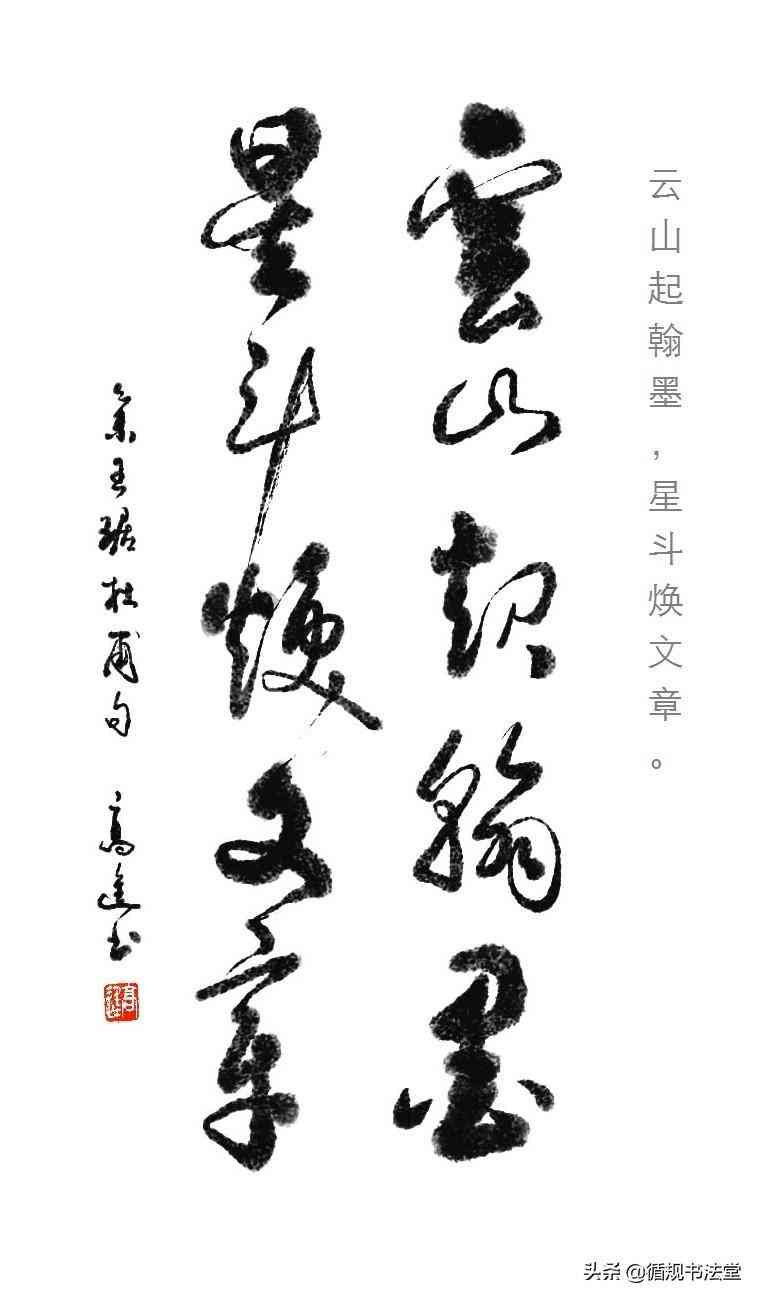 云山起翰墨,星斗焕文章。
雲山起翰墨
星斗焕文章
集王琚杜甫句 高進书
头条 @循规书法堂